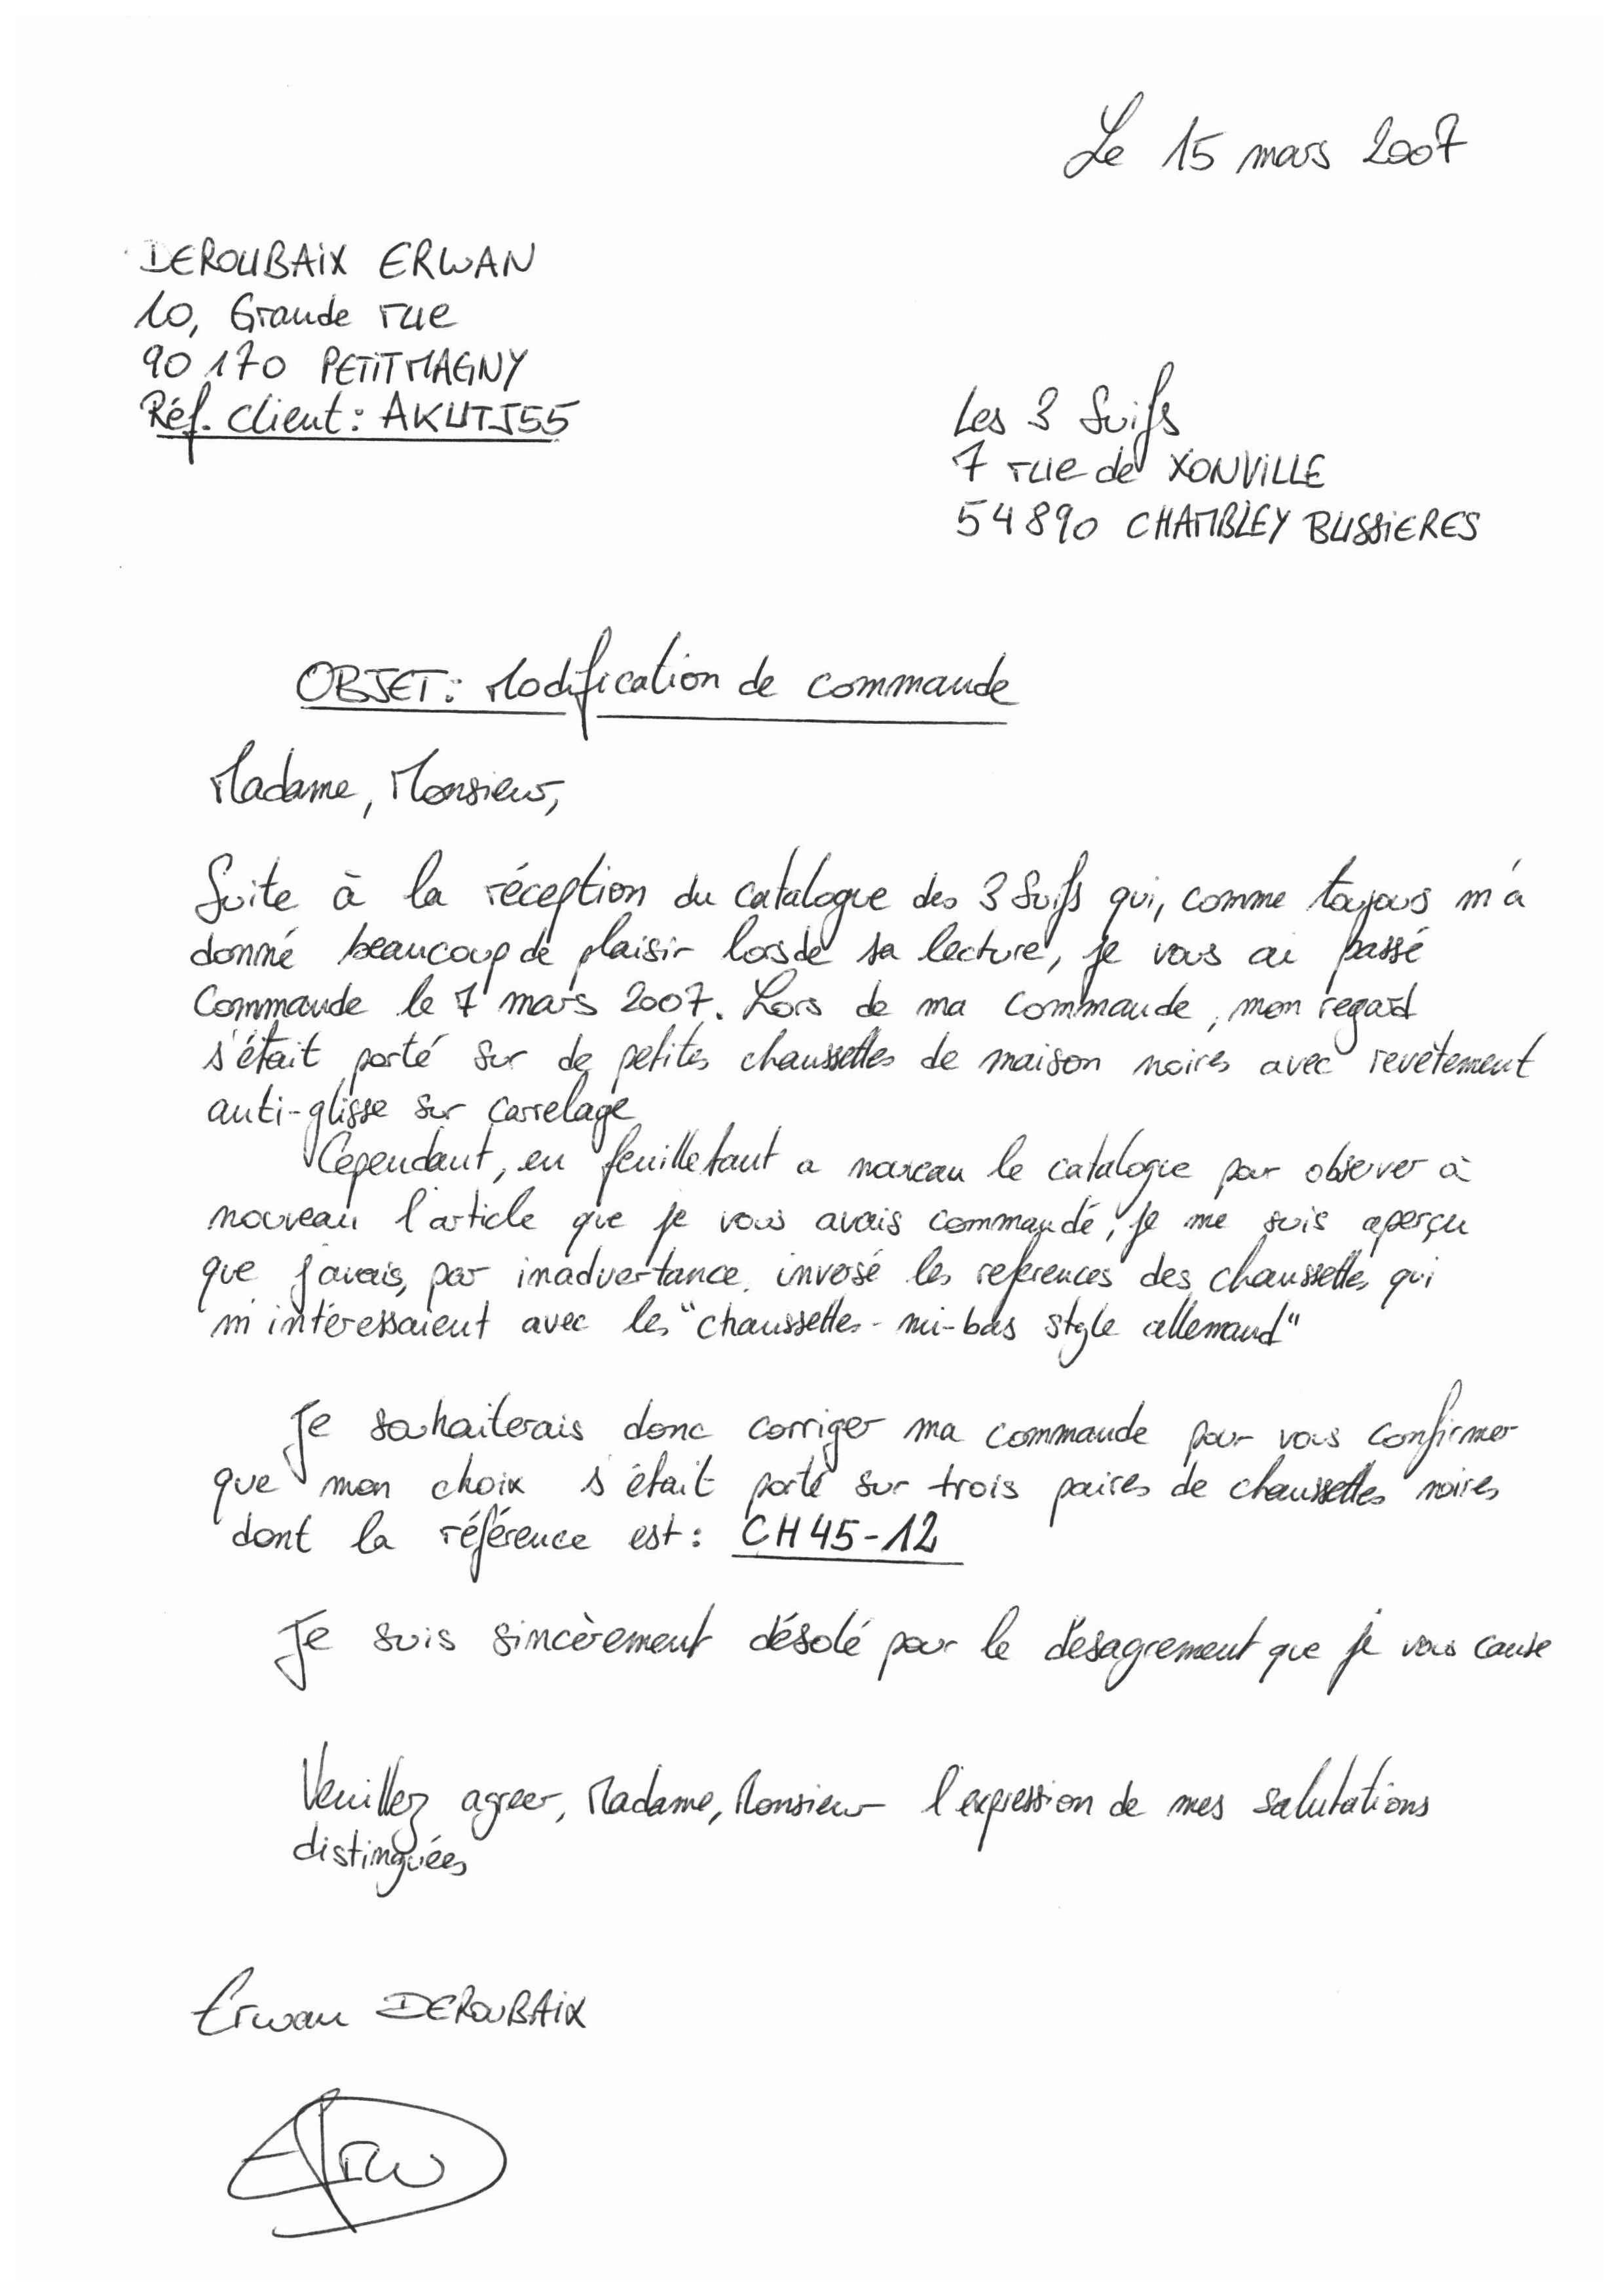 Le 15 mars 2007
DEROUBAIX ERWAN
10, Grande rue
90170 PETITMAGNY
Réf. client : AKUTJ55
Les 3 Suifs
7 rue de XONVILLE
54890 CHAMBLEY BUSSIERES
OBJET : Modification de commande
Madame, Monsieur,
Suite à la réception du catalogue des 3 Suifs qui, comme toujours m'a
donné beaucoup de plaisir lors de sa lecture, je vous ai passé
Commande le 7 mars 2007. Lors de ma commande, mon regard
s'était porté sur de petites chaussettes de maison noires avec revêtement
anti-glisse sur carrelage
Cependant, en feuilletant a nouveau le catalogue pour observer à
nouveau l'article que je vous avais commandé, je me suis aperçu
que j'avais, par inadvertance, inversé les references des chaussettes qui
m'intéressaient avec les "chaussettes - mi-bas style allemand"
Je souhaiterais donc corriger ma commande pour vous confirmer
que mon choix s'était porté sur trois paires de chaussettes noires
dont la référence est : CH45-12
Je suis sincèrement désolé pour le désagrement que je vous cause
Veuillez agreer, Madame, Monsieur l'expression de mes salutations
distinguées
Erwan DEROUBAIX